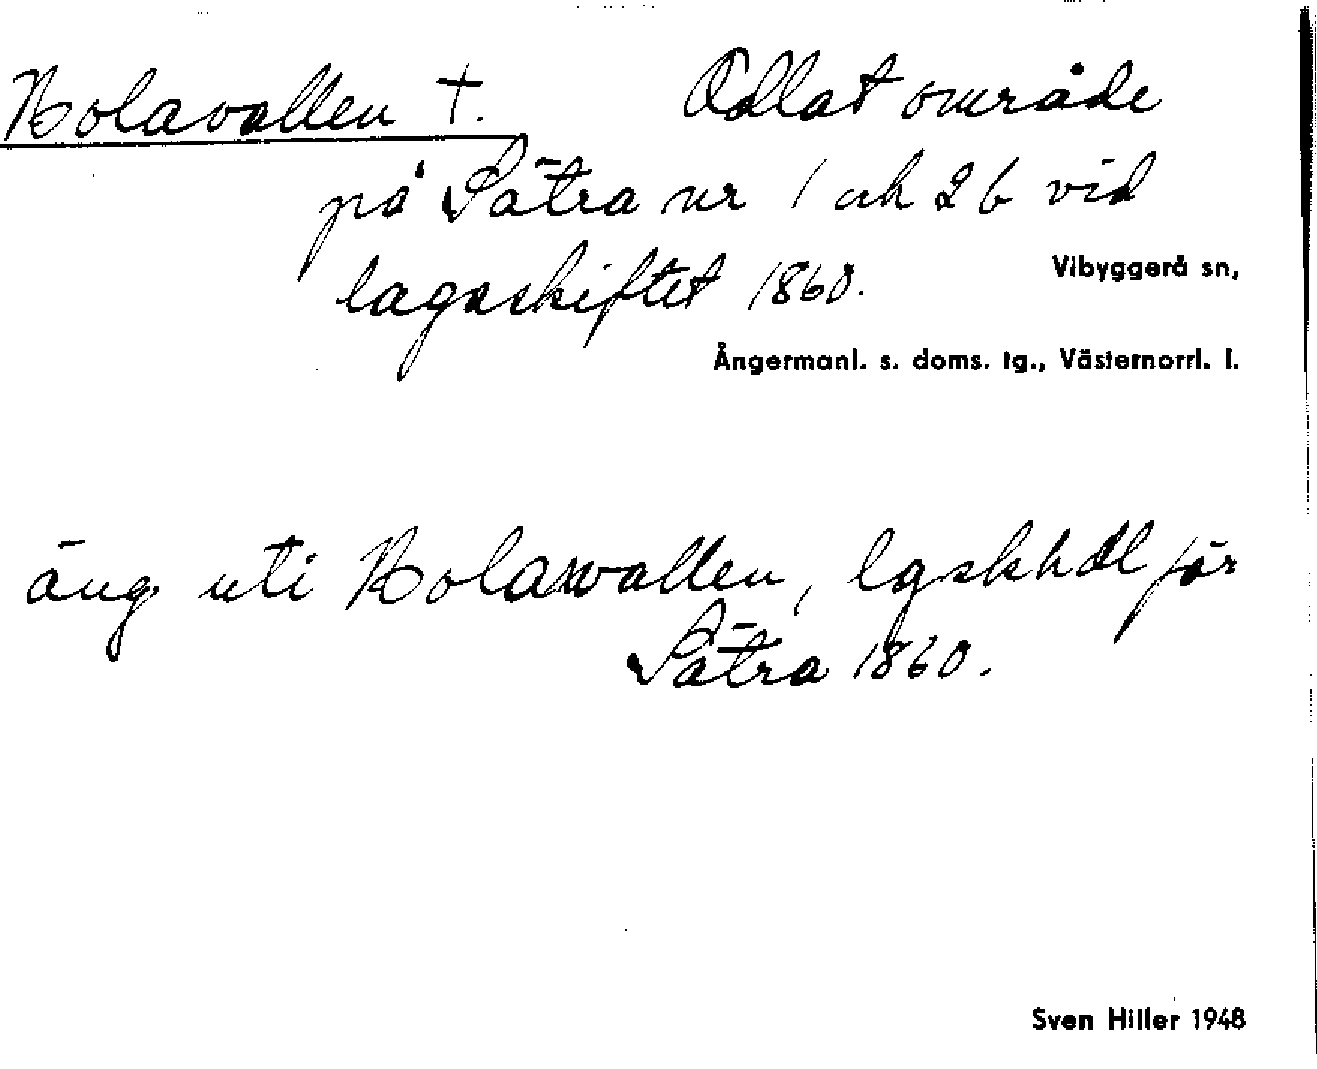 Kolavallen †. Odlat område
på Sätra nr 1 och 2 b vid
lagaskiftet 1860.
Vibyggerå sn,
Ångermanl. s. doms. tg., Västernorrl. l.
äng uti Kolarwallen, lgskhdl för
Sätra 1860.
Sven Hiller 1948